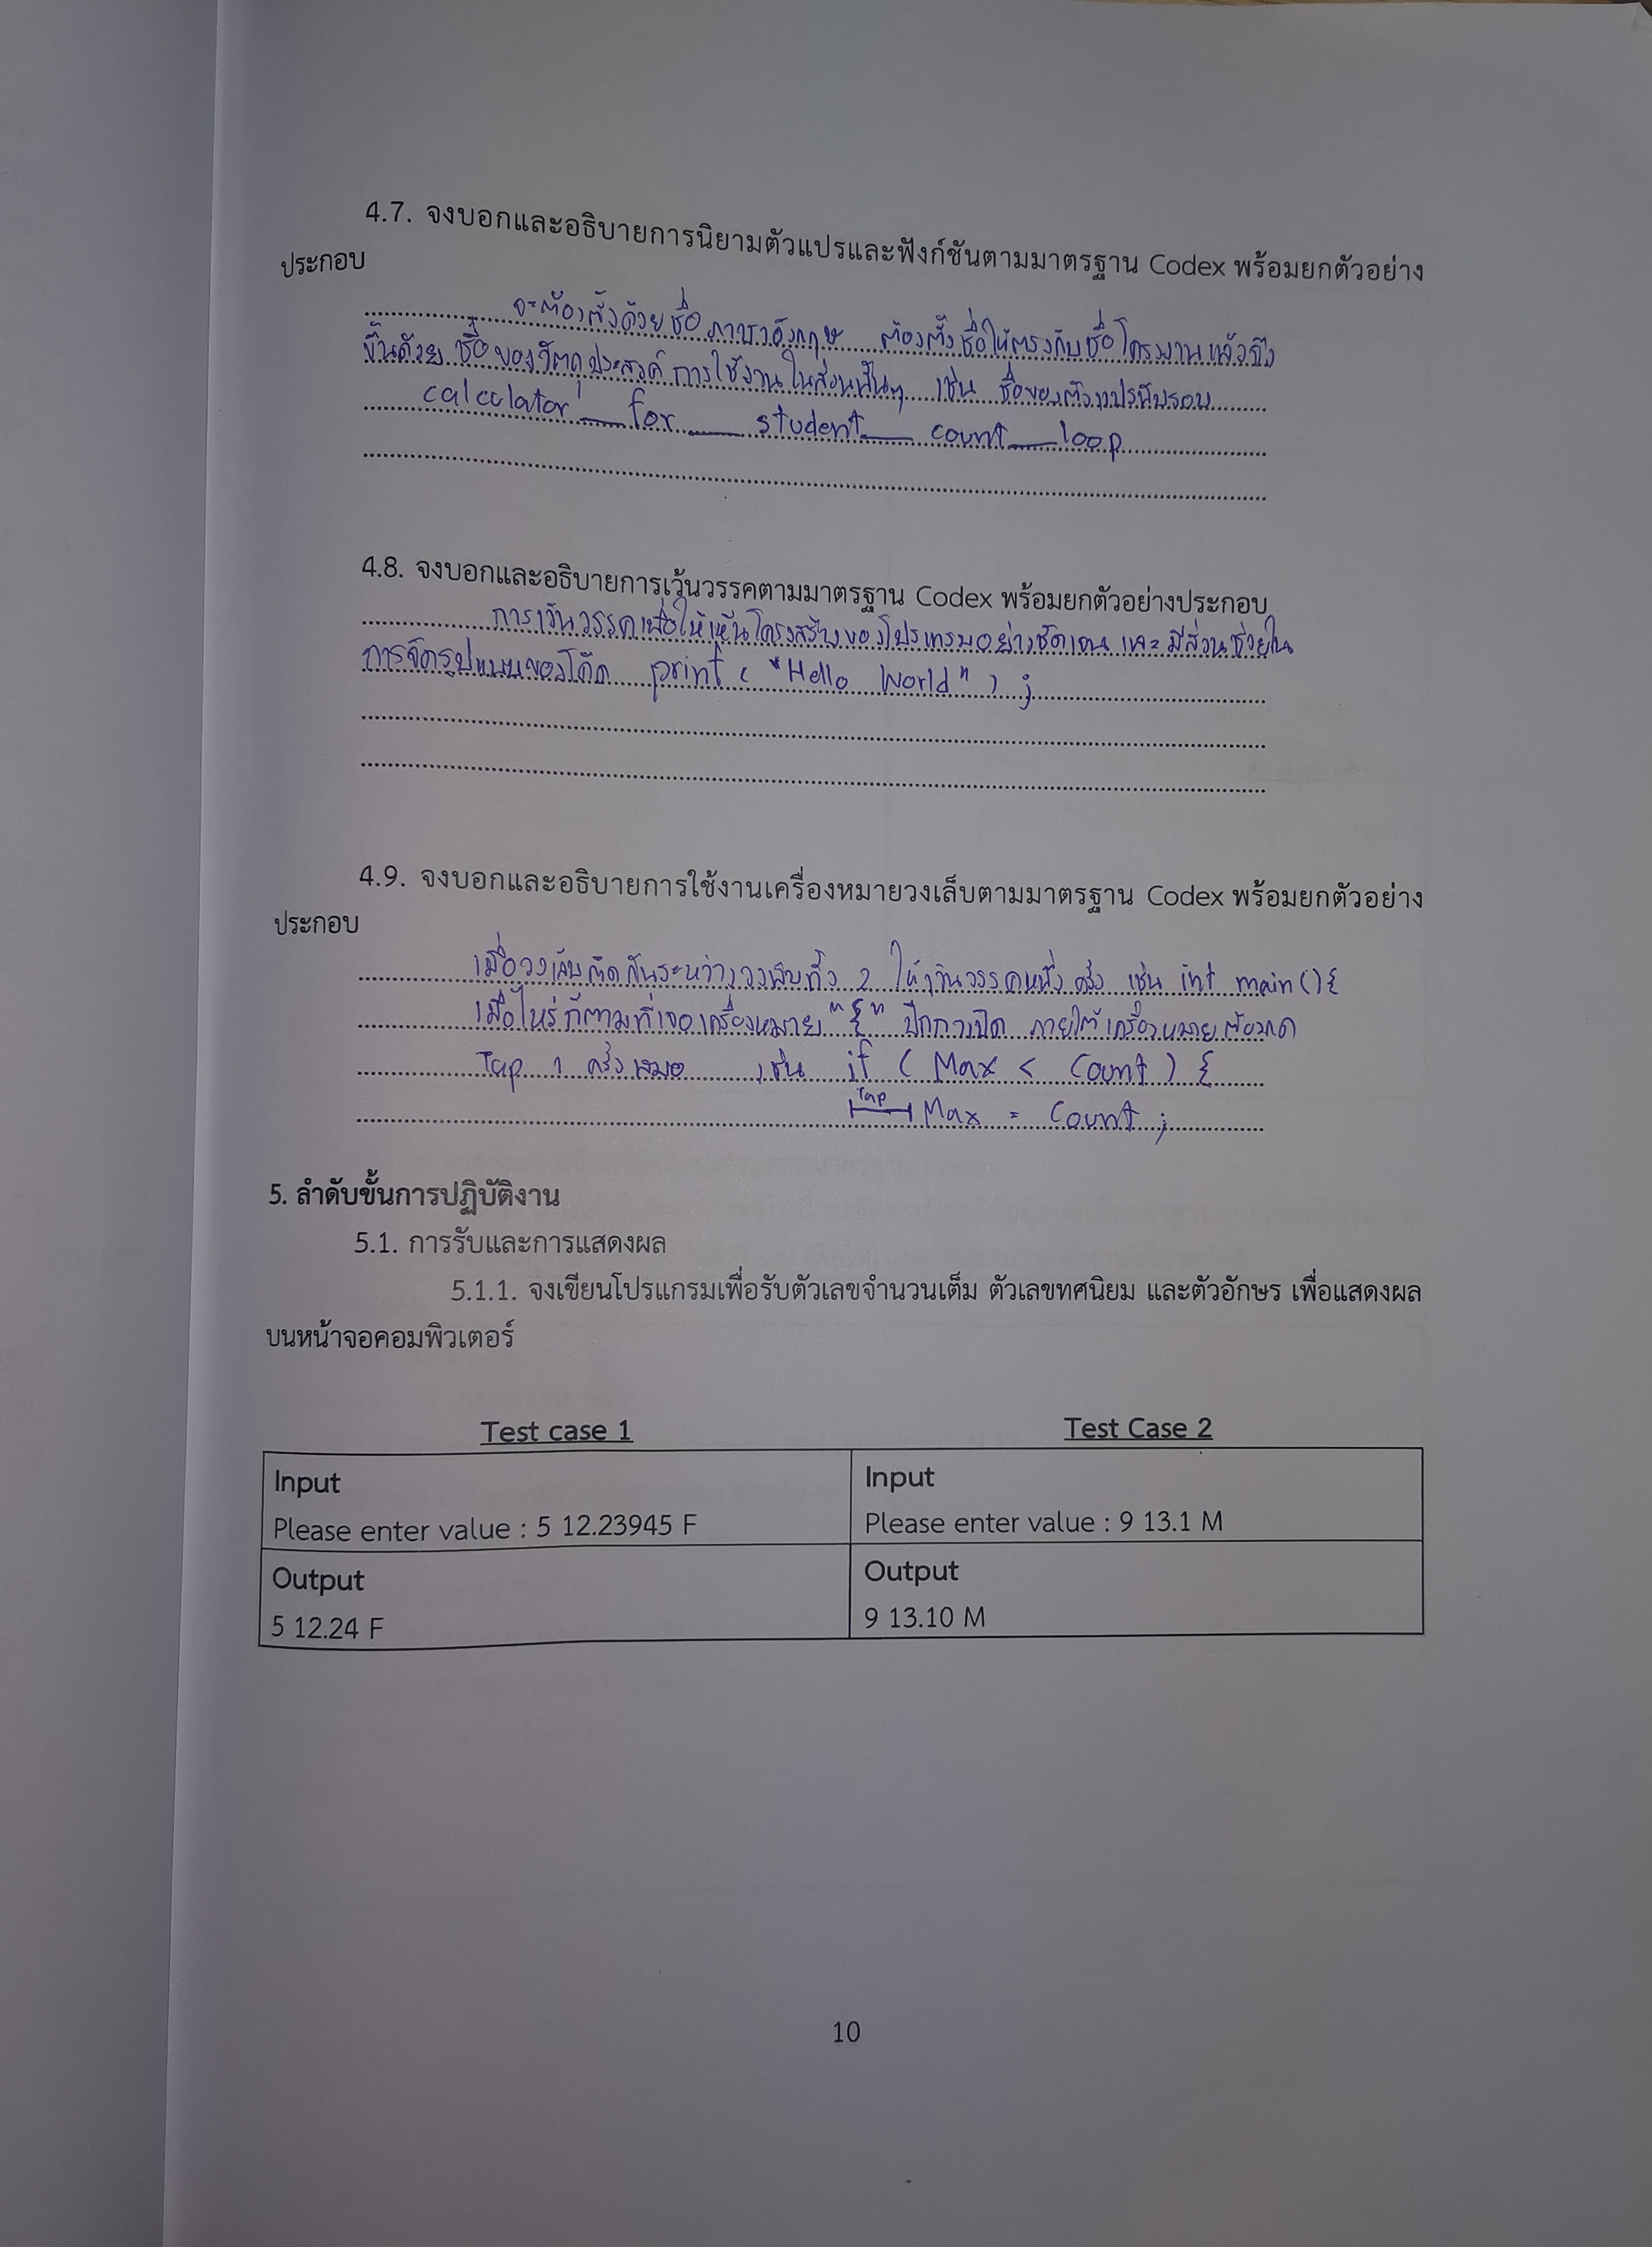 4.7. จงบอกและอธิบายการนิยามตัวแปรและฟังก์ชันตามมาตรฐาน Codex พร้อมยกตัวอย่าง
ประกอบ
จะต้องตั้งด้วยชื่อภาษาอังกฤษ ต้องตั้งชื่อให้ตรงกับชื่อโครงงานแล้วถึง
ขั้นด้วย ชื่อของวัตถุประสงค์ การใช้งานในส่วนนั้นๆ เช่น ชื่อของตัวแปรนับรอบ
calculator_for_student_count_loop
4.8. จงบอกและอธิบายการเว้นวรรคตามมาตรฐาน Codex พร้อมยกตัวอย่างประกอบ
การเว้นวรรคเพื่อให้เห็นโครงสร้างของโปรแกรมอย่างชัดเจน และมีส่วนช่วยใน
การจัดรูปแบบของโค้ด print ( "Hello World" ) ;
4.9. จงบอกและอธิบายการใช้งานเครื่องหมายวงเล็บตามมาตรฐาน Codex พร้อมยกตัวอย่าง
ประกอบ
เมื่อวงเล็บติดกันระหว่างวงเล็บทั้ง 2 ให้เว้นวรรคหนึ่งครั้ง เช่น int main(){
เมื่อไหร่ก็ตามที่เจอเครื่องหมาย "{" ปีกกาเปิด ภายใต้เครื่องหมายต้องกด
Tap 1 ครั้งเสมอ เช่น if ( Max < Count ) {
Tap Max = Count ;
5. ลำดับขั้นการปฏิบัติงาน
5.1. การรับและการแสดงผล
5.1.1. จงเขียนโปรแกรมเพื่อรับตัวเลขจำนวนเต็ม ตัวเลขทศนิยม และตัวอักษร เพื่อแสดงผล
บนหน้าจอคอมพิวเตอร์
Test case 1
Test Case 2
Input
Please enter value : 5 12.23945 F
Input
Please enter value : 9 13.1 M
Output
5 12.24 F
Output
9 13.10 M
10